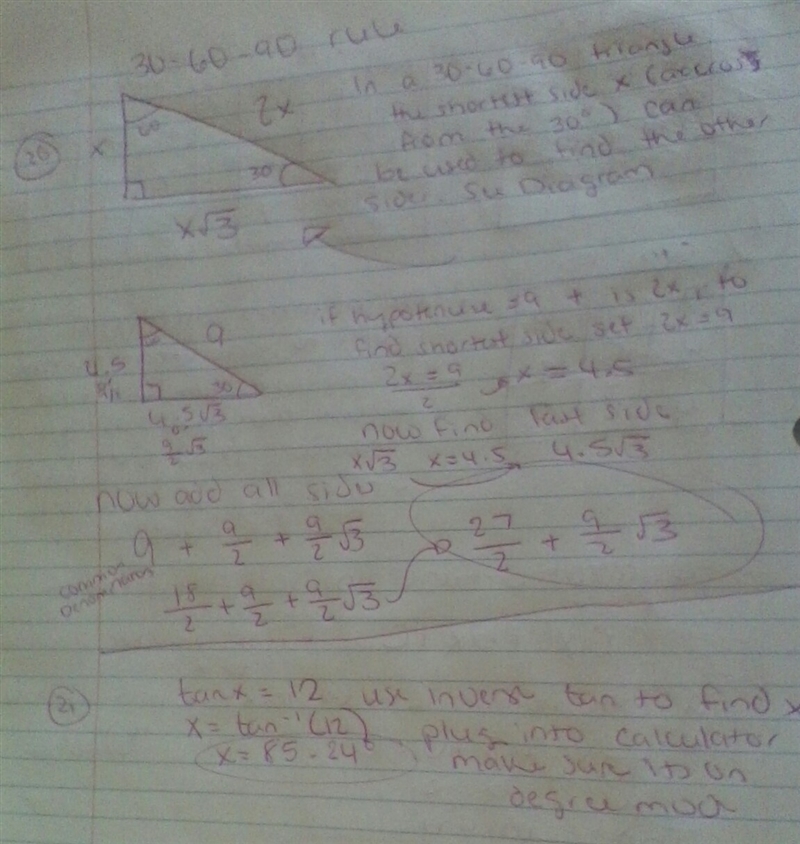 30-60-90 rule
20
In a 30-60-90 triangle
the shortest side x (across
from the 30°) can
be used to find the other
side. See Diagram
x
60
2x
30
x√3
if hypotenuse = 9 + is 2x, to
find shortest side set 2x = 9
2x = 9
2
x = 4.5
9
4.5
30
4.5√3
or
9/2 √3
now find last side
x√3 x = 4.5 4.5√3
now add all side
9 + 9/2 + 9/2 √3
27/2 + 9/2 √3
common
Denominators
18/2 + 9/2 + 9/2 √3
21
tan x = 12 use inverse tan to find x
x = tan⁻¹(12) plug into calculator
x = 85.24° make sure its on
degree mode